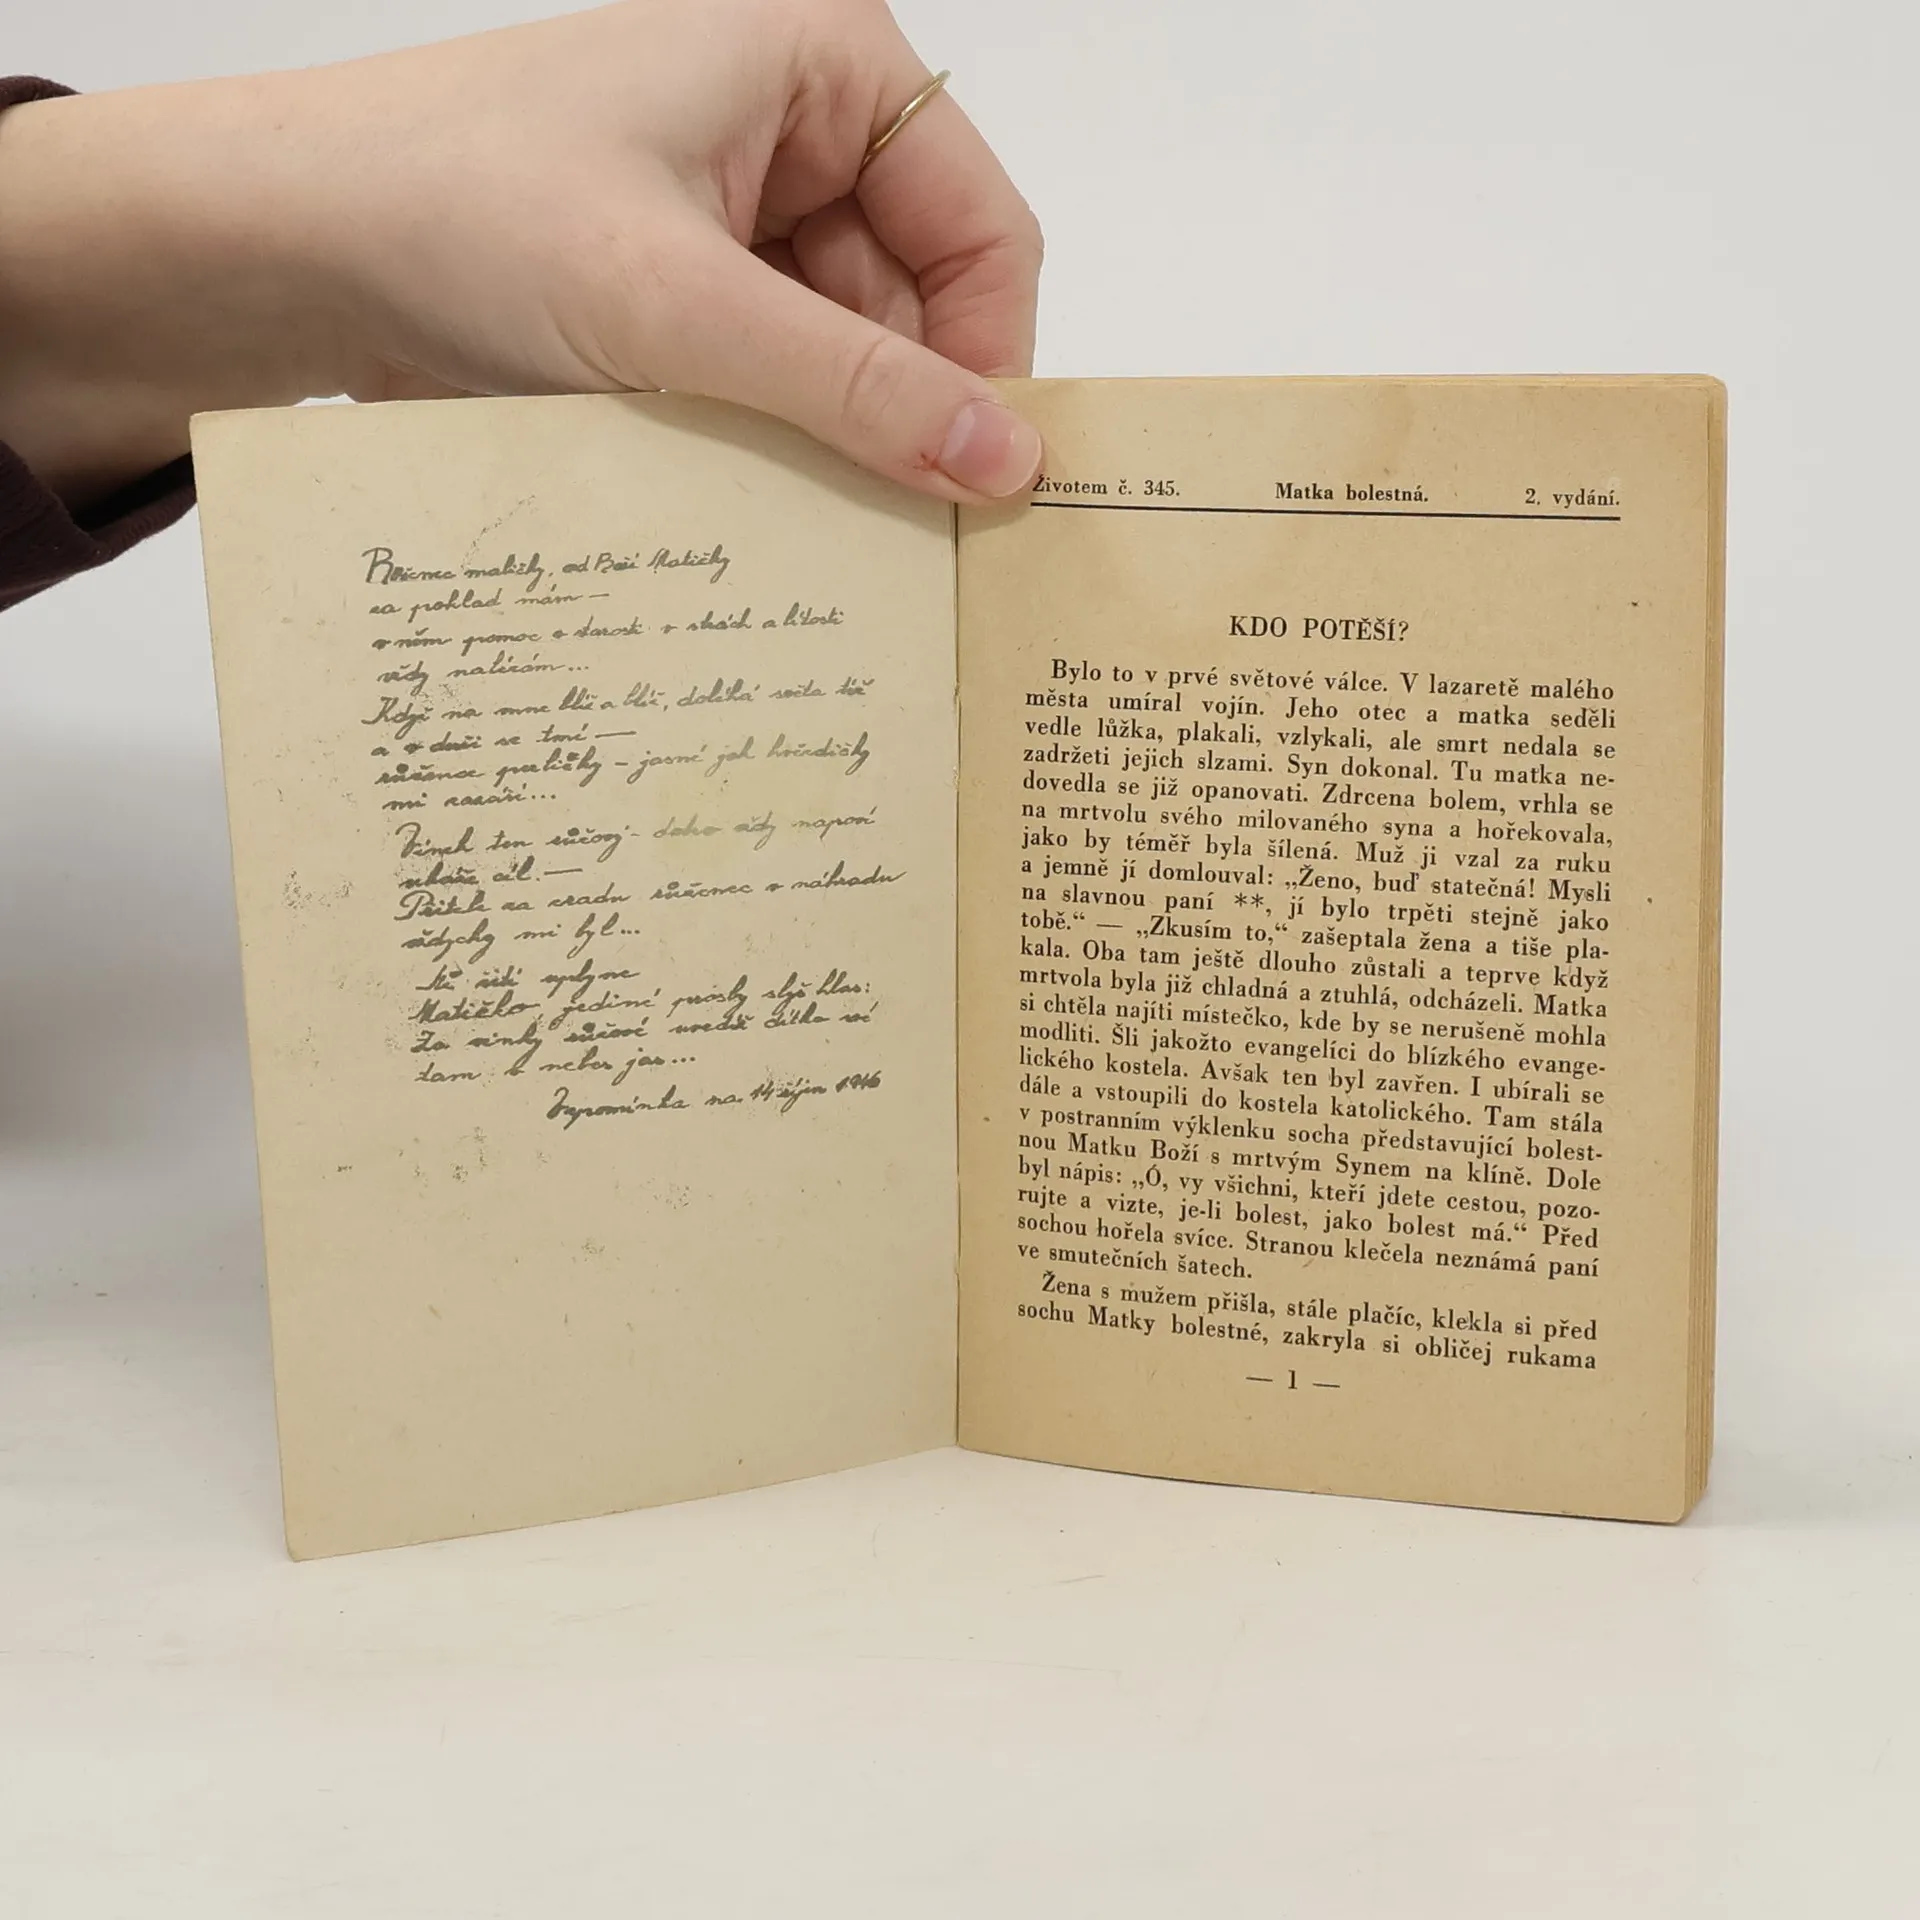 Růženec maličký, od Boží Matičky
za poklad mám —
v něm pomoc v starosti v strách a lítosti
vždy nalézám...
Když na mne blíž a blíž, doléhá světa tíž
a v duši se tmí —
růžence perličky – jasné jak hvězdičky
mi zazáří...
Vínek ten růžový – vždy napoví
ukáže cíl. —
Přítele za zradu růženec v náhradu
vždycky mi byl...
Než žití uplyne
Matičko, jediné prosby slyš hlas:
Za vínky růžové uvediž dítko své
tam v nebes jas...
Vzpomínka na 14 říjen 1946
Životem č. 345. Matka bolestná. 2. vydání.
KDO POTĚŠÍ?
Bylo to v prvé světové válce. V lazaretě malého
města umíral vojín. Jeho otec a matka seděli
vedle lůžka, plakali, vzlykali, ale smrt nedala se
zadržeti jejich slzami. Syn dokonal. Tu matka ne-
dovedla se již opanovati. Zdrcena bolem, vrhla se
na mrtvolu svého milovaného syna a hořekovala,
jako by téměř byla šílená. Muž ji vzal za ruku
a jemně jí domlouval: „Ženo, buď statečná! Mysli
na slavnou paní **, jí bylo trpěti stejně jako
tobě.“ — „Zkusím to,“ zašeptala žena a tiše pla-
kala. Oba tam ještě dlouho zůstali a teprve když
mrtvola byla již chladná a ztuhlá, odcházeli. Matka
si chtěla najíti místečko, kde by se nerušeně mohla
modliti. Šli jakožto evangelíci do blízkého evange-
lického kostela. Avšak ten byl zavřen. I ubírali se
dále a vstoupili do kostela katolického. Tam stála
v postranním výklenku socha představující bolest-
nou Matku Boží s mrtvým Synem na klíně. Dole
byl nápis: „Ó, vy všichni, kteří jdete cestou, pozo-
rujte a vizte, je-li bolest, jako bolest má.“ Před
sochou hořela svíce. Stranou klečela neznámá paní
ve smutečních šatech.
Žena s mužem přišla, stále plačíc, klekla si před
sochu Matky bolestné, zakryla si obličej rukama
— 1 —